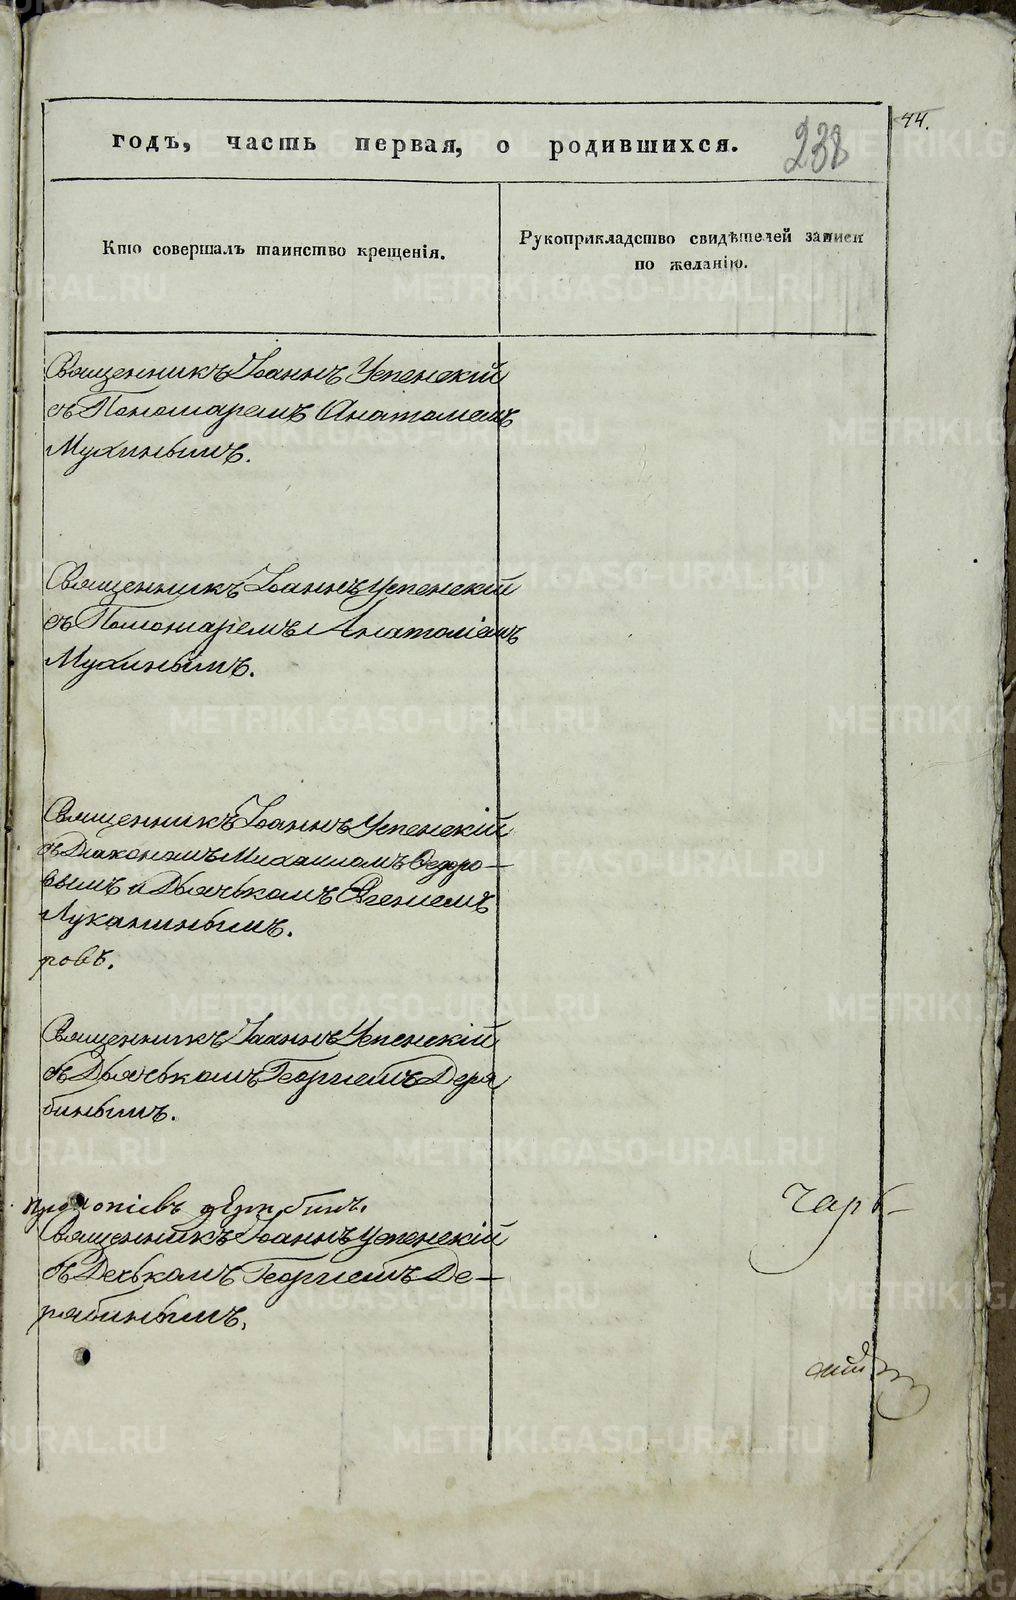 44.
годъ, часть первая, о родившихся. 238
Кто совершалъ таинство крещенія.
Рукоприкладство свидѣтелей записи
по желанію.
Священникъ Іоаннъ Успенскій
съ Пономаремъ Анатоліемъ
Мухинымъ.
Священникъ Іоаннъ Успенскій
съ Пономаремъ Анатоліемъ
Мухинымъ.
Священникъ Іоаннъ Успенскій
съ Діакономъ Михаиломъ Федоро-
вымъ и Дьячькомъ Евгеніемъ
Луканинымъ.
ровъ.
Священникъ Іоаннъ Успенскій
съ Дьячькомъ Георгіемъ Деря
бинымъ.
Священникъ Іоаннъ Успенскій
съ Дечькомъ Георгіемъ Де-
рябинымъ.
METRIKI.GASO-URAL.RU